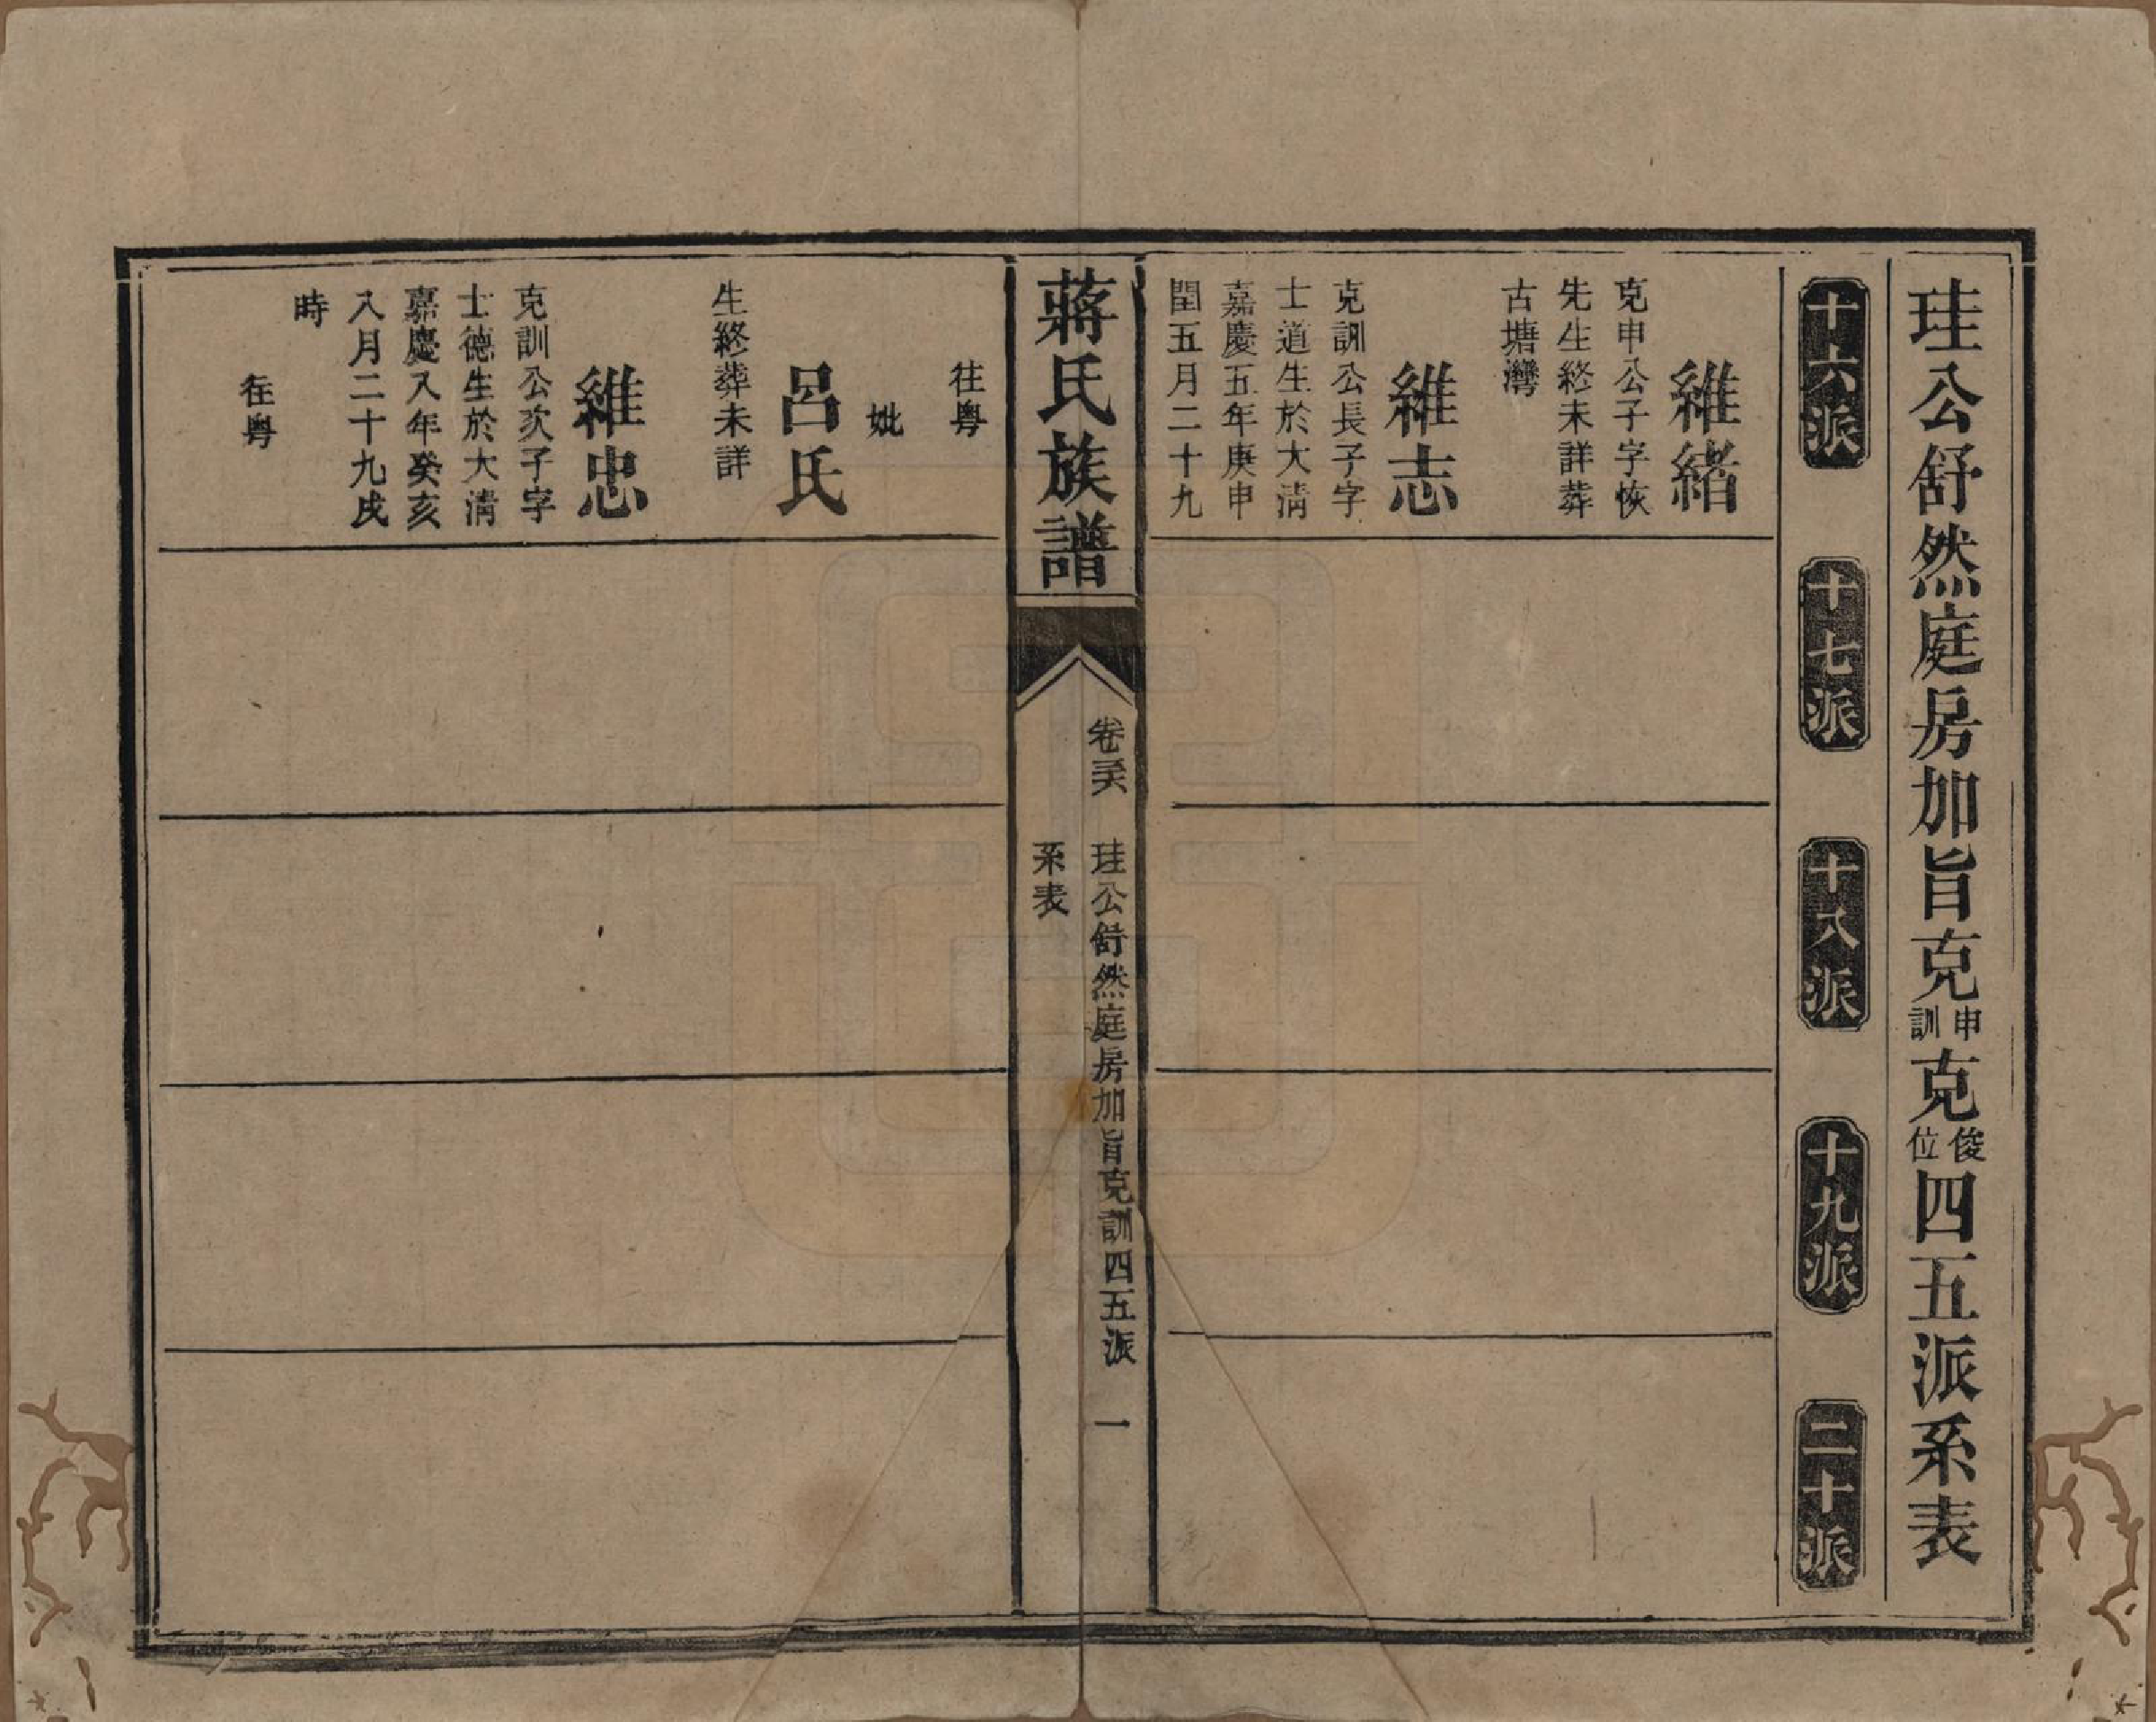 珪公舒然庭房加旨克申訓克俊位四五派系表
十六派
十七派
十八派
十九派
二十派
維緒
克申公子字恢
先生終未詳葬
古塘灣
維志
克訓公長子字
士道生於大清
嘉慶五年庚申
閏五月二十九
蔣氏族譜
卷三六
珪公舒然庭房加旨克訓四五派
系表
一
往粤
妣
呂氏
生終葬未詳
維忠
克訓公次子字
士德生於大清
嘉慶八年癸亥
八月二十九戌
時
往粤